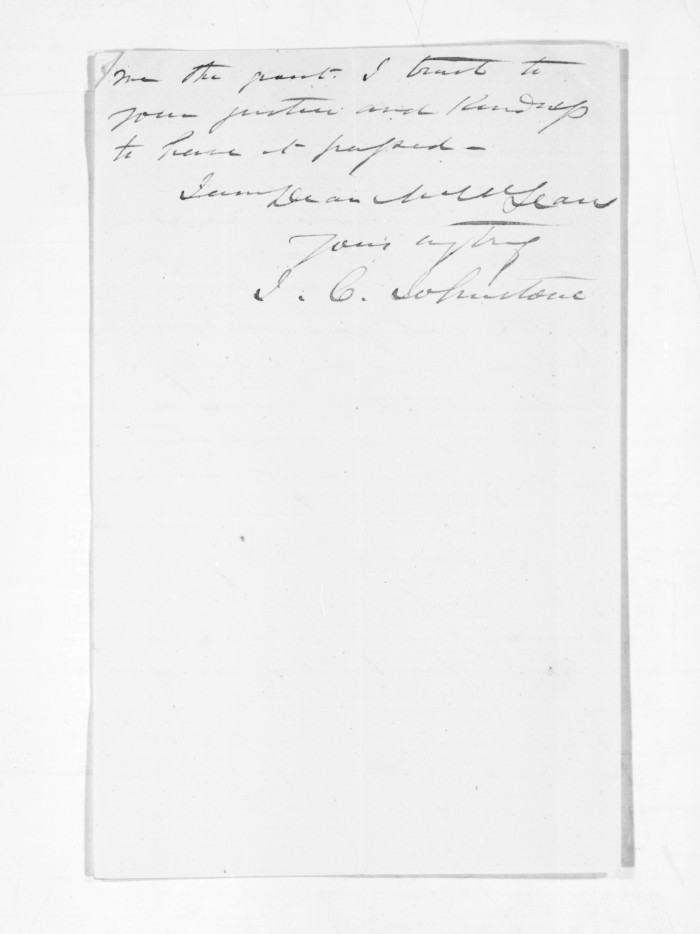 me the grant. I trust to
your justice and kindness
to have it passed -
I am Dear Mr McLean
Yours very truly
J. C. Johnstone